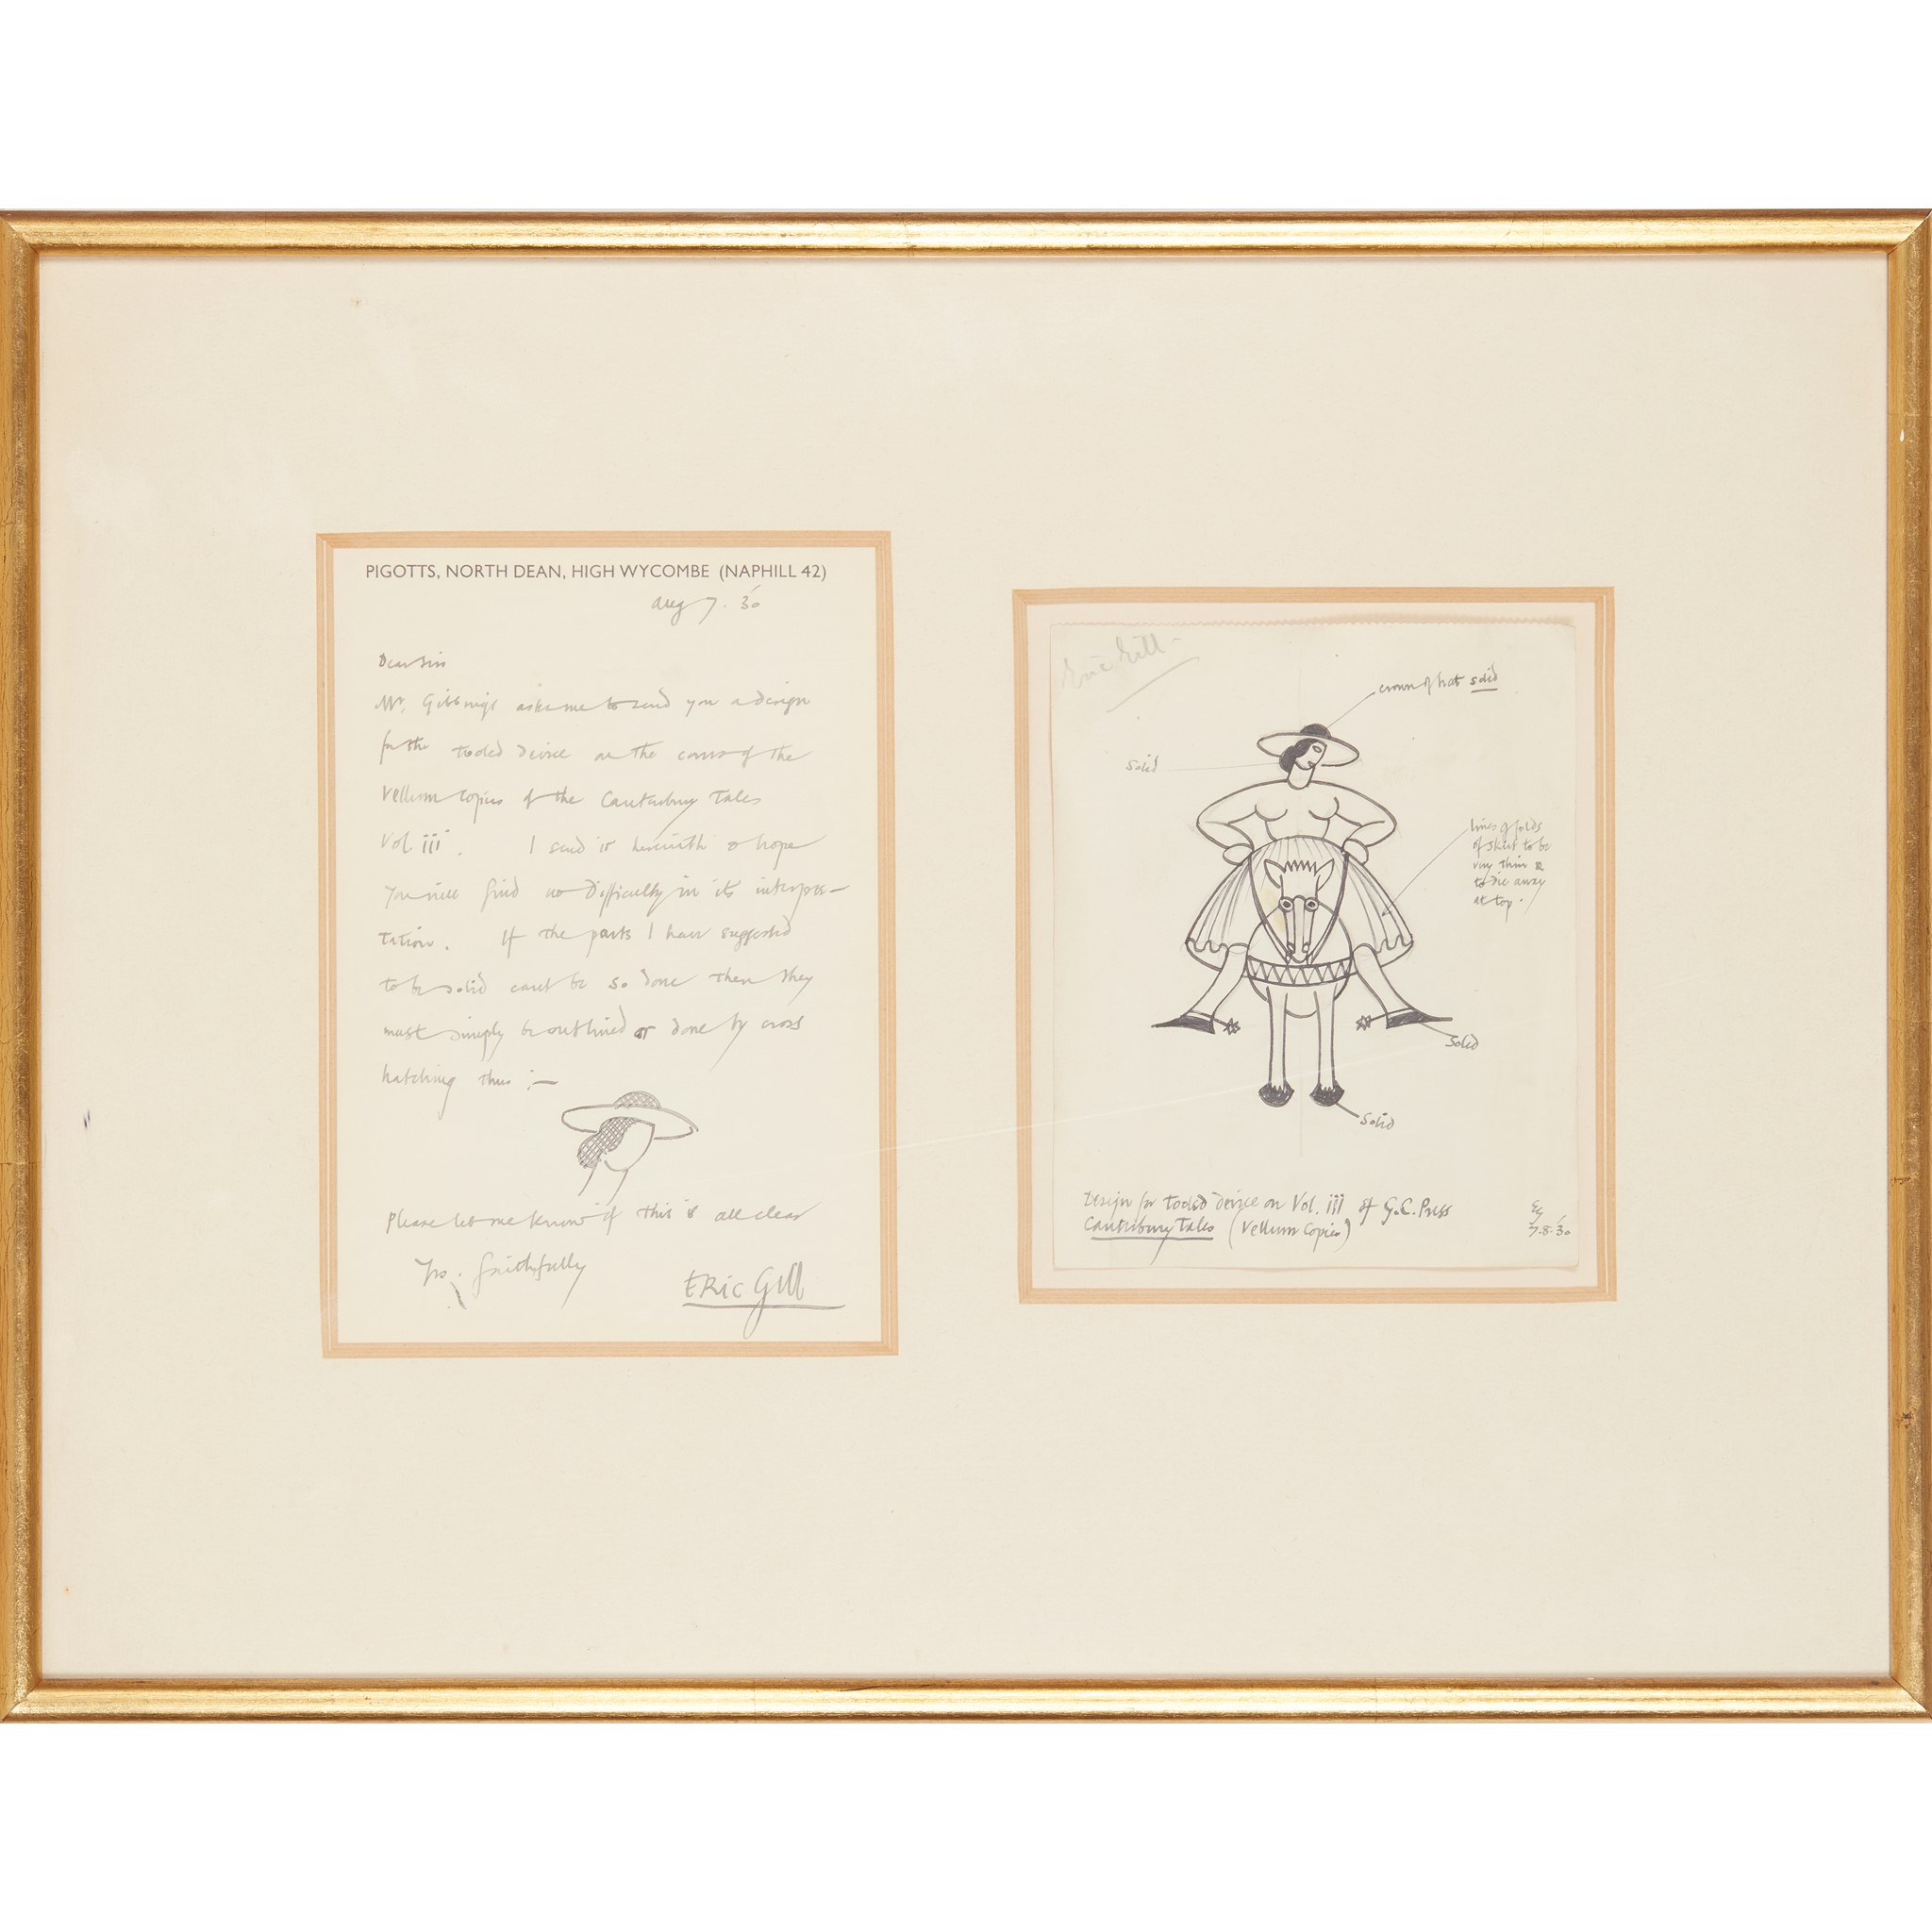 PIGOTTS, NORTH DEAN, HIGH WYCOMBE (NAPHILL 42)
Aug 7. 30
Dear Sirs
Mr. Gibbings asks me to send you a design
for the tooled device on the covers of the
Vellum copies of the Canterbury Tales
Vol. iii. I send it herewith & hope
you will find no difficulty in its interpre-
tation. If the parts I have suggested
to be solid can't be so done then they
must simply be outlined or done by cross
hatching thus :—
Please let me know if this is all clear
Yrs. faithfully
ERIC GILL
Eric Gill
crown of hat solid
solid
lines of folds
of skirt to be
very thin &
to die away
at top.
Solid
Solid
Design for tooled device on Vol. iii of G.C. Press
Canterbury Tales (Vellum Copies)
EG
7.8.30